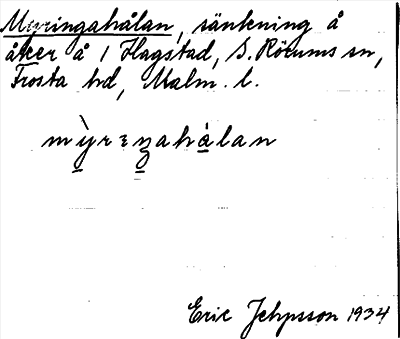 Myringahålan, sänkning å
åker å 1 Hagstad, S. Rörums sn,
Frosta hd, Malm. l.
mỳrɛŋahålan
Eric Jehpsson 1934